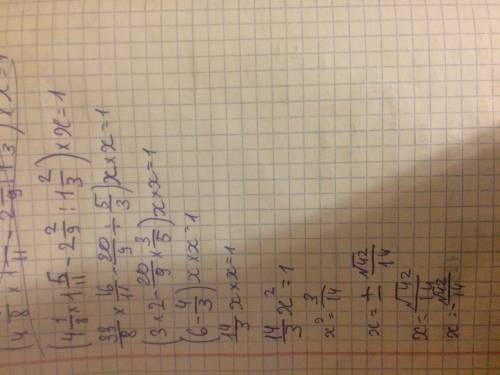 (4 1/8 × 1 5/11 - 2 2/9 : 1 2/3) × x = 1
33/8 × 16/11 - 20/9 ÷ 5/3) x × x = 1
(3 × 2 - 20/9 × 3/5) x × x = 1
(6 - 4/3) x × x = 1
14/3 x × x = 1
14/3 x² = 1
x² = 3/14
x = ± √42/14
x = √42/14
x = - √42/14